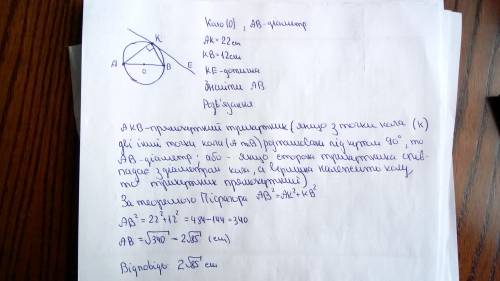 K
A
B
E
O
Коло(О), АВ-діаметр
АК=22см
КВ=12см
КЕ-дотична
Знайти АВ
Розв'язання
АКВ-прямокутний трикутник (якщо з точки кола (К)
дві інші точки кола (А та В) розташовані під кутом 90°, то
АВ-діаметр, або - якщо сторона трикутника спів-
падає з діаметром кола, а вершина належить колу,
то трикутник прямокутний)
За теоремою Піфагора АВ²=АК²+КВ²
АВ²=22²+12²=484-144=340
АВ=√340=2√85 (см)
Відповідь: 2√85 см